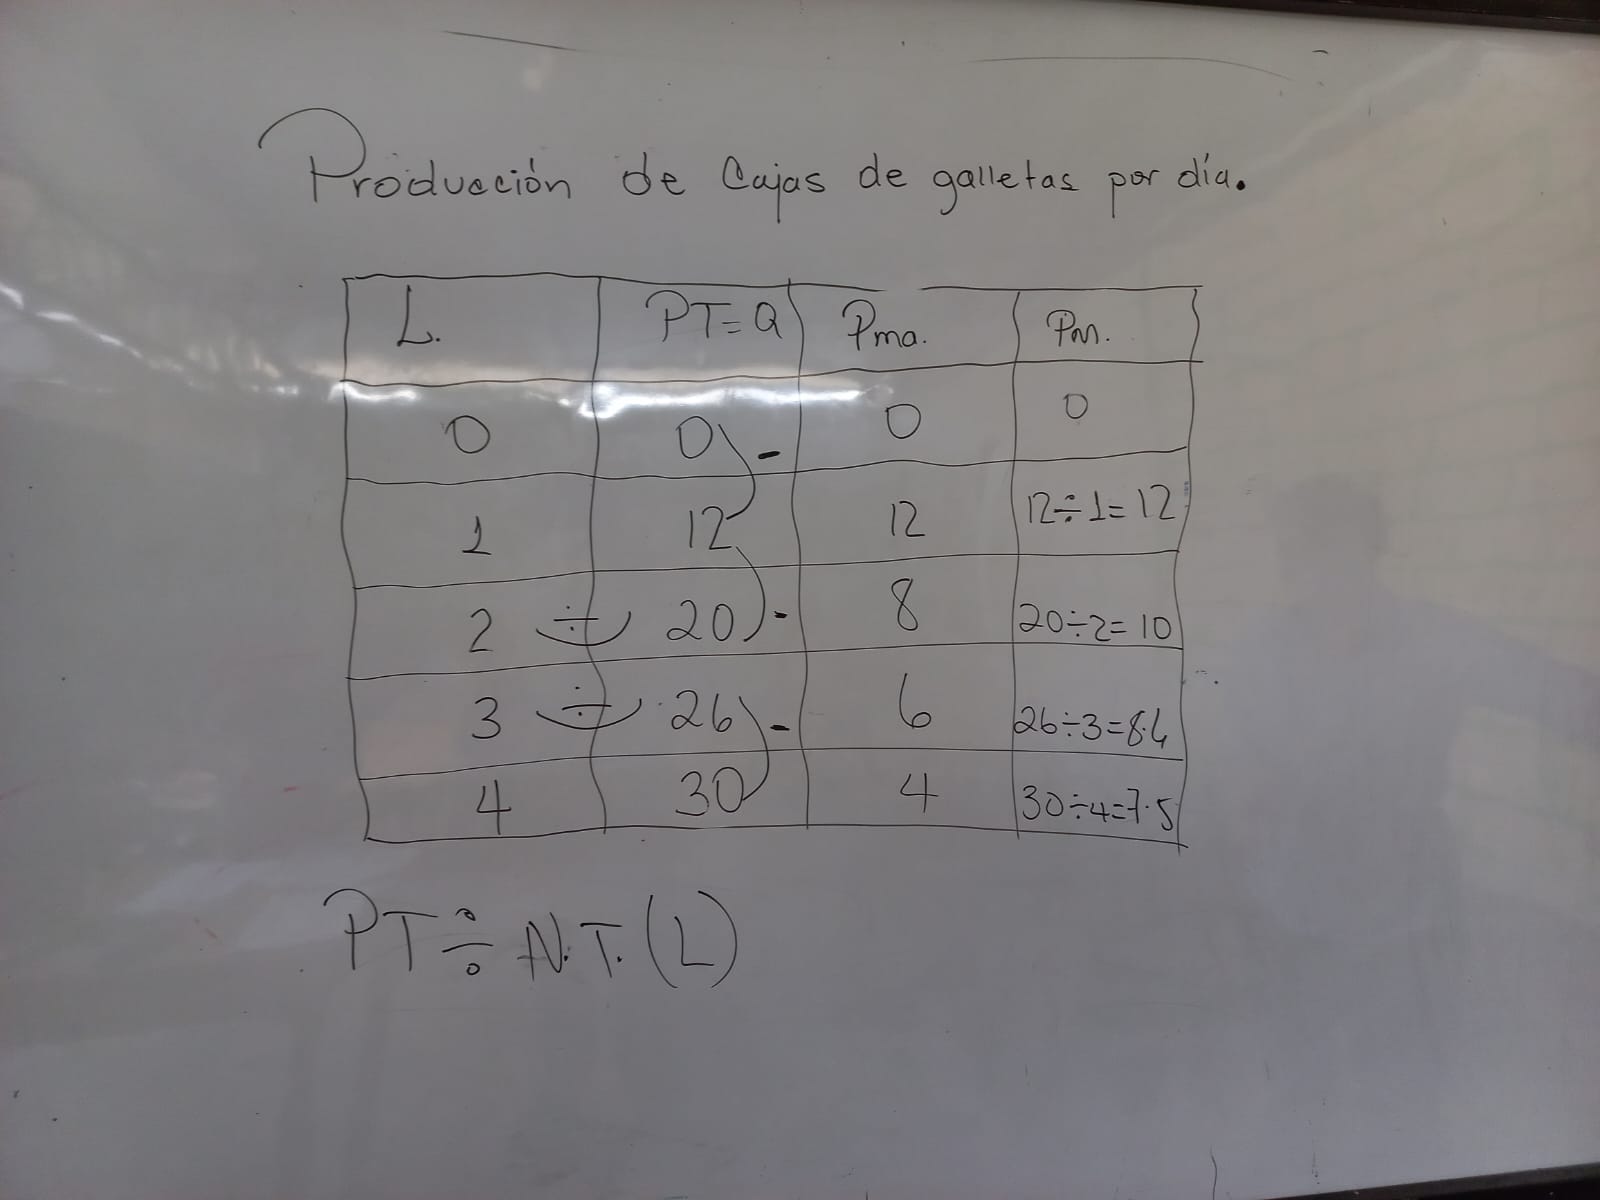 Producción de Cajas de galletas por día.
L. PT=Q Pma. Pm.
0 0 - 0 0
1 12 12 12÷1=12
2 ÷ 20 - 8 20÷2=10
3 ÷ 26 - 6 26÷3=8.6
4 30 4 30÷4=7.5
PT÷N.T.(L)